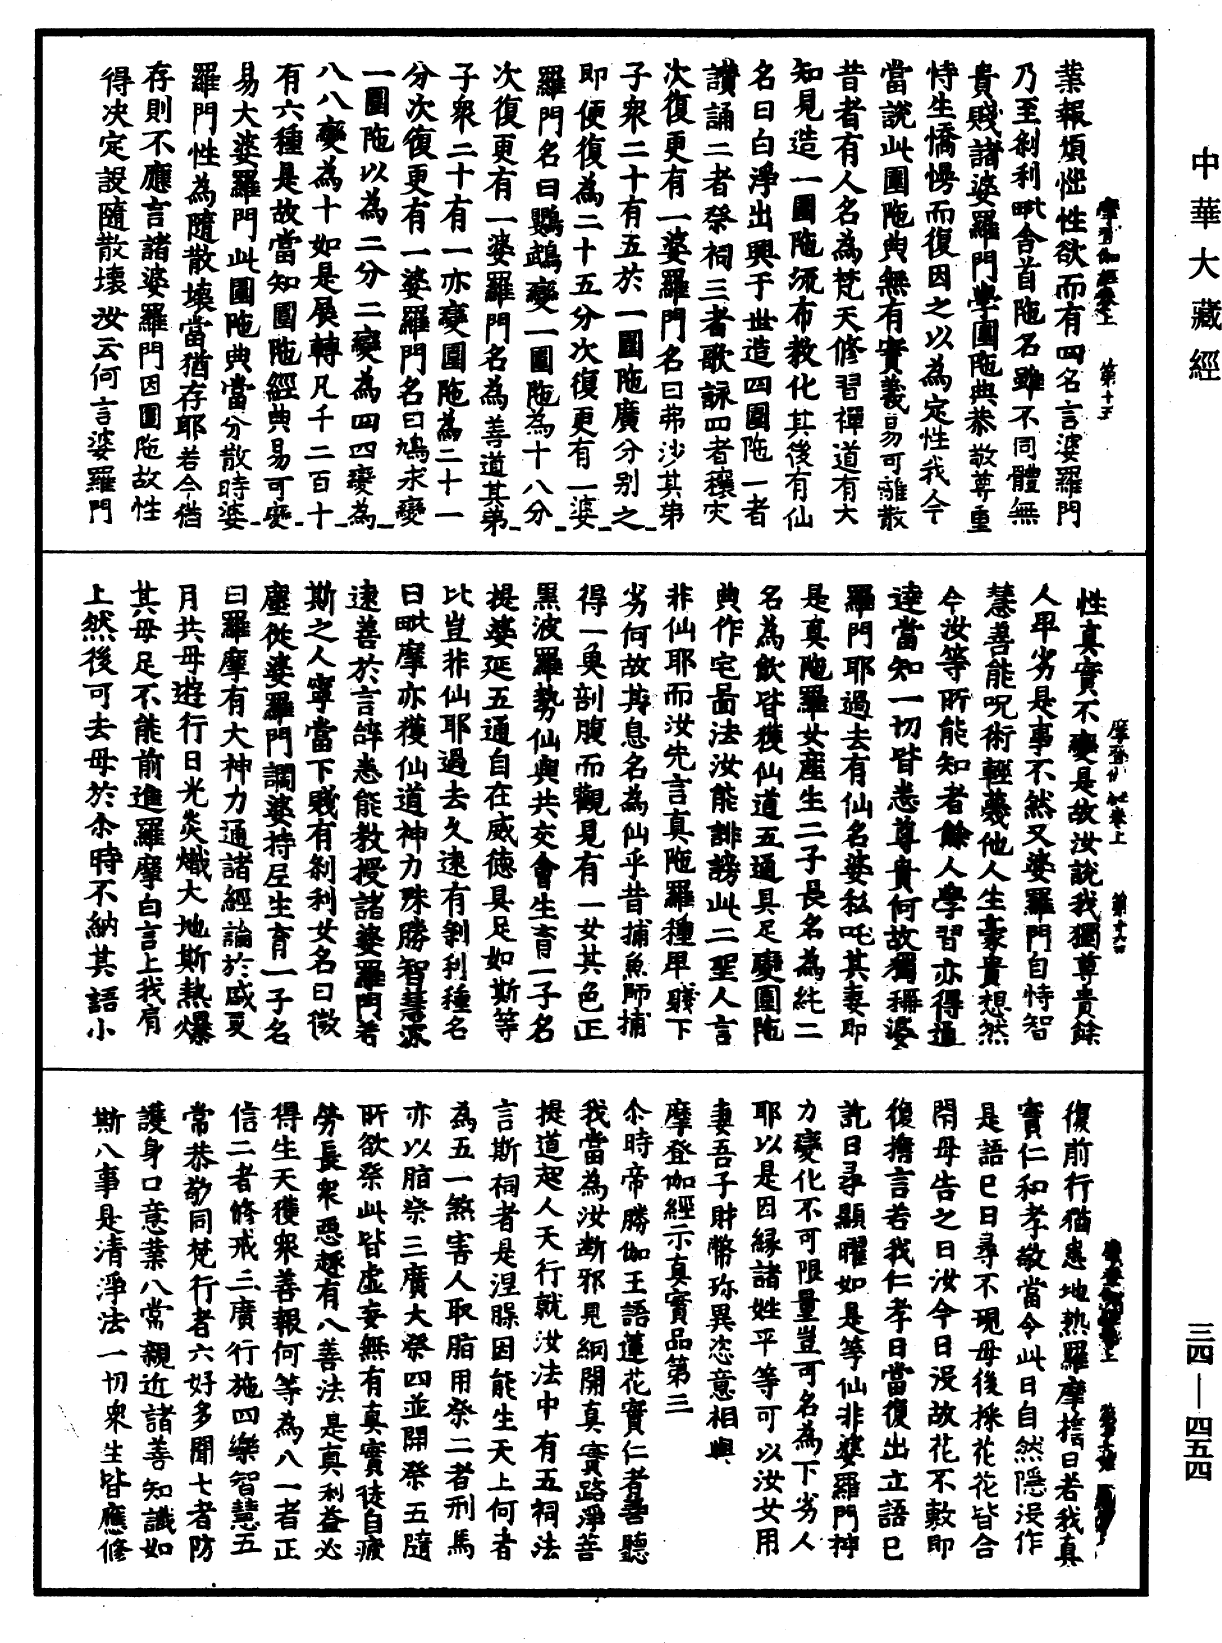 中華大藏經
業報煩惱性欲而有四名言婆羅門
乃至刹利毗舍首陁名雖不同體無
貴賤諸婆羅門學圍陁典恭敬尊重
恃生憍慢而復因之以為定性我今
當說此圍陁典無有實義易可離散
昔者有人名為梵天修習禪道有大
知見造一圍陁流布教化其後有仙
名曰白淨出興于世造四圍陁一者
讚誦二者祭祠三者歌詠四者穰灾
次復更有一婆羅門名曰弗沙其弟
子衆二十有五於一圍陁廣分别之
即便復為二十五分次復更有一婆
羅門名曰鸚鵡變一圍陁為十八分
次復更有一婆羅門名為善道其弟
子衆二十有一亦變圍陁為二十一
分次復更有一婆羅門名曰鳩求變
一圍陁以為二分二變為四四變為
八八變為十如是展轉凡千二百十
有六種是故當知圍陁經典易可變
易大婆羅門此圍陁典當分散時婆
羅門性為隨散壞當猶存耶若令猶
存則不應言諸婆羅門因圍陁故性
得决定設隨散壞汝云何言婆羅門
性真實不變是故汝說我獨尊貴餘
人卑劣是事不然又婆羅門自恃智
慧善能呪術輕蔑他人生豪貴想然
今汝等所能知者餘人學習亦得通
達當知一切皆悉尊貴何故獨稱婆
羅門耶過去有仙名婆私吒其妻即
是真陁羅女產生二子長名為純二
名為飲皆獲仙道五通具足變圍陁
典作宅啚法汝能誹謗此二聖人言
非仙耶而汝先言真陁羅種卑賤下
劣何故其息名為仙乎昔捕魚師捕
得一魚剖腹而觀見有一女其色正
黑波羅勢仙與共交會生育一子名
提婆延五通自在威德具足如斯等
比豈非仙耶過去久遠有刹利種名
曰毗摩亦獲仙道神力殊勝智慧深
遠善於言辞悉能教授諸婆羅門若
斯之人寧當下賤有刹利女名曰微
塵從婆羅門讇婆持尼生育一子名
曰羅摩有大神力通諸經論於盛夏
月共母遊行日光炎熾大地斯熱爆
其母足不能前進羅摩白言上我肩
上然後可去母於尒時不納其語小
復前行猶患地熱羅摩㨪曰若我真
實仁和孝敬當令此日自然隱没作
是語已日尋不現母後採花花皆合
閇母告之曰汝令日没故花不敷即
復擔言若我仁孝日當復出立語已
訖日尋顯曜如是等仙非婆羅門神
力變化不可限量豈可名為下劣人
耶以是因縁諸姓平等可以汝女用
妻吾子財幣珎異恣意相與
摩登伽經示真實品第三
尒時帝勝伽王語蓮花實仁者善聽
我當為汝斷邪見網開真實路淨菩
提道趣人天行就汝法中有五祠法
言斯祠者是涅䏶因能生天上何者
為五一煞害人取脂用祭二者刑馬
亦以脂祭三廣大祭四並開祭五隨
所欲祭此皆虛妄無有真實徒自疲
勞長衆惡趣有八善法是真利益必
得生天獲衆善報何等為八一者正
信二者修戒三廣行施四樂智慧五
常恭敬同梵行者六好多聞七者防
護身口意業八常親近諸善知識如
斯八事是清淨法一切衆生皆應修
三四—四五四